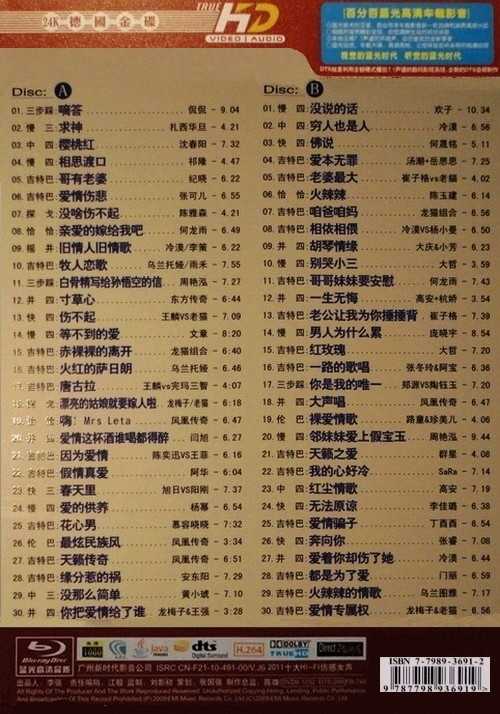 24K 德國金碟
TRUE HD
VIDEO AUDIO
百分百蓝光高清车载影音
视觉的蓝光时代 听觉的蓝光时代
Disc: A
01.三步踩:嘀答 侃侃 - 9.04
02.慢 三 求神 扎西华旦 - 4.21
03.中 四 樱桃红 沈春阳 - 7.32
04.慢 四 相思渡口 祁隆 - 4.47
05.吉特巴 哥有老婆 纪晓 - 6.22
06.吉特巴 爱情伤悲 张可儿 - 6.55
07.探 戈 没啥伤不起 陈雅森 - 4.21
08.恰 恰 亲爱的嫁给我吧 何龙雨 - 6.49
09.摇 井 旧情人旧情歌 冷漠/李策 - 6.22
10.吉特巴 牧人恋歌 乌兰托娅/雨禾 - 7.55
11.三步踩 白骨精写给孙悟空的信 周艳泓 - 7.27
12.井 四 寸草心 东方传奇 - 6:44
13.快 四 伤不起 王麟vs老猫 - 7.09
14.慢 四 等不到的爱 文章 - 8:20
15.吉特巴 赤裸裸的离开 龙猫组合 - 6:40
16.吉特巴 火红的萨日朗 乌兰托娅 - 6.46
17.吉特巴 唐古拉 王麟vs完玛三智 - 4.07
18.探 戈 漂亮的姑娘就要嫁人啦 龙梅子/老猫 - 6:18
19.恰 恰 嗨! Mrs Leta 凤凰传奇 - 6.47
20.井 四 爱情这杯酒谁喝都得醉 闫旭 - 6.27
21.吉特巴 因为爱情 陈奕迅vs王菲 - 6.16
22.吉特巴 假情真爱 阿华 - 6:04
23.快 三 春天里 旭日vs阳刚 - 7.37
24.慢 四 爱的供养 杨幂 - 6.54
25.吉特巴 花心男 慕容晓晓 - 7:32
26.伦 巴 最炫民族风 凤凰传奇 - 3:34
27.中 四 天籁传奇 凤凰传奇 - 6.51
28.吉特巴 缘分惹的祸 安东阳 - 7.29
29.中 三 没那么简单 黄小琥 - 7.10
30.井 四 你把爱情给了谁 龙梅子&王强 - 3:28
Disc: B
01.慢 四 没说的话 欢子 - 10.34
02.中 四 穷人也是人 冷漠 - 6.56
03.快 四 佛说 何晟铭 - 5.11
04.吉特巴 爱本无罪 汤潮+岳思思 - 7.25
05.吉特巴 老婆最大 崔子格vs老猫 - 4.02
06.恰 恰 火辣辣 陈玉建 - 6.14
07.吉特巴 咱爸咱妈 龙猫组合 - 6.56
08.吉特巴 相依相偎 冷漠VS杨小曼 - 6.50
09.井 四 胡琴情缘 大庆&小芳 - 6.23
10.慢 四 别哭小三 大哲 - 3.59
11.吉特巴 哥哥妹妹要安慰 何龙雨 - 7.43
12.井 四 一生无悔 高安+杭娇 - 3.54
13.吉特巴 老公让我为你捶捶背 崔子格 - 7.39
14.慢 四 男人为什么累 庞晓宇 - 8.54
15.吉特巴 红玫瑰 大哲 - 7.20
16.吉特巴 一路的歌唱 张冬玲&阿宝 - 6.36
17.三步踩 你是我的唯一 郑源VS陶钰玉 - 7.20
18.井 四 大声唱 凤凰传奇 - 6.47
19.伦 巴 裸爱情歌 路童&珍美儿 - 4.06
20.慢 四 邻妹妹爱上假宝玉 周艳泓 - 9.44
21.吉特巴 天籁之爱 群星 - 4.08
22.吉特巴 我的心好冷 SaRa - 7.14
23.中 四 红尘情歌 高安 - 7.19
24.快 四 无法原谅 李佳璐 - 6.38
25.吉特巴 爱情骗子 丁酉酉 - 8.54
26.快 四 奔向你 张睿 - 7.08
27.井 四 爱着你却伤了她 冷漠 - 6.44
28.吉特巴 都是为了爱 门丽 - 6.59
29.吉特巴 火辣辣的情歌 乌兰图雅 - 7.17
30.吉特巴 爱情专属权 龙梅子&老猫 - 6.56
Blu-ray Disc
蓝光高清品质
1080
Java
dts
Digital Surround
H.264
DOLBY
TRUEHD
广州新时代影音公司 ISRC CN-F21-10-491-00/V.J6 2011十大HI-FI低感女声
All Rights Of The Producer And The Work Reproduced Reserved. Unauthorized Copying, Hiring, Lending, Public Performance
ISBN 7-7989-3691-2
9 787798 936919 >